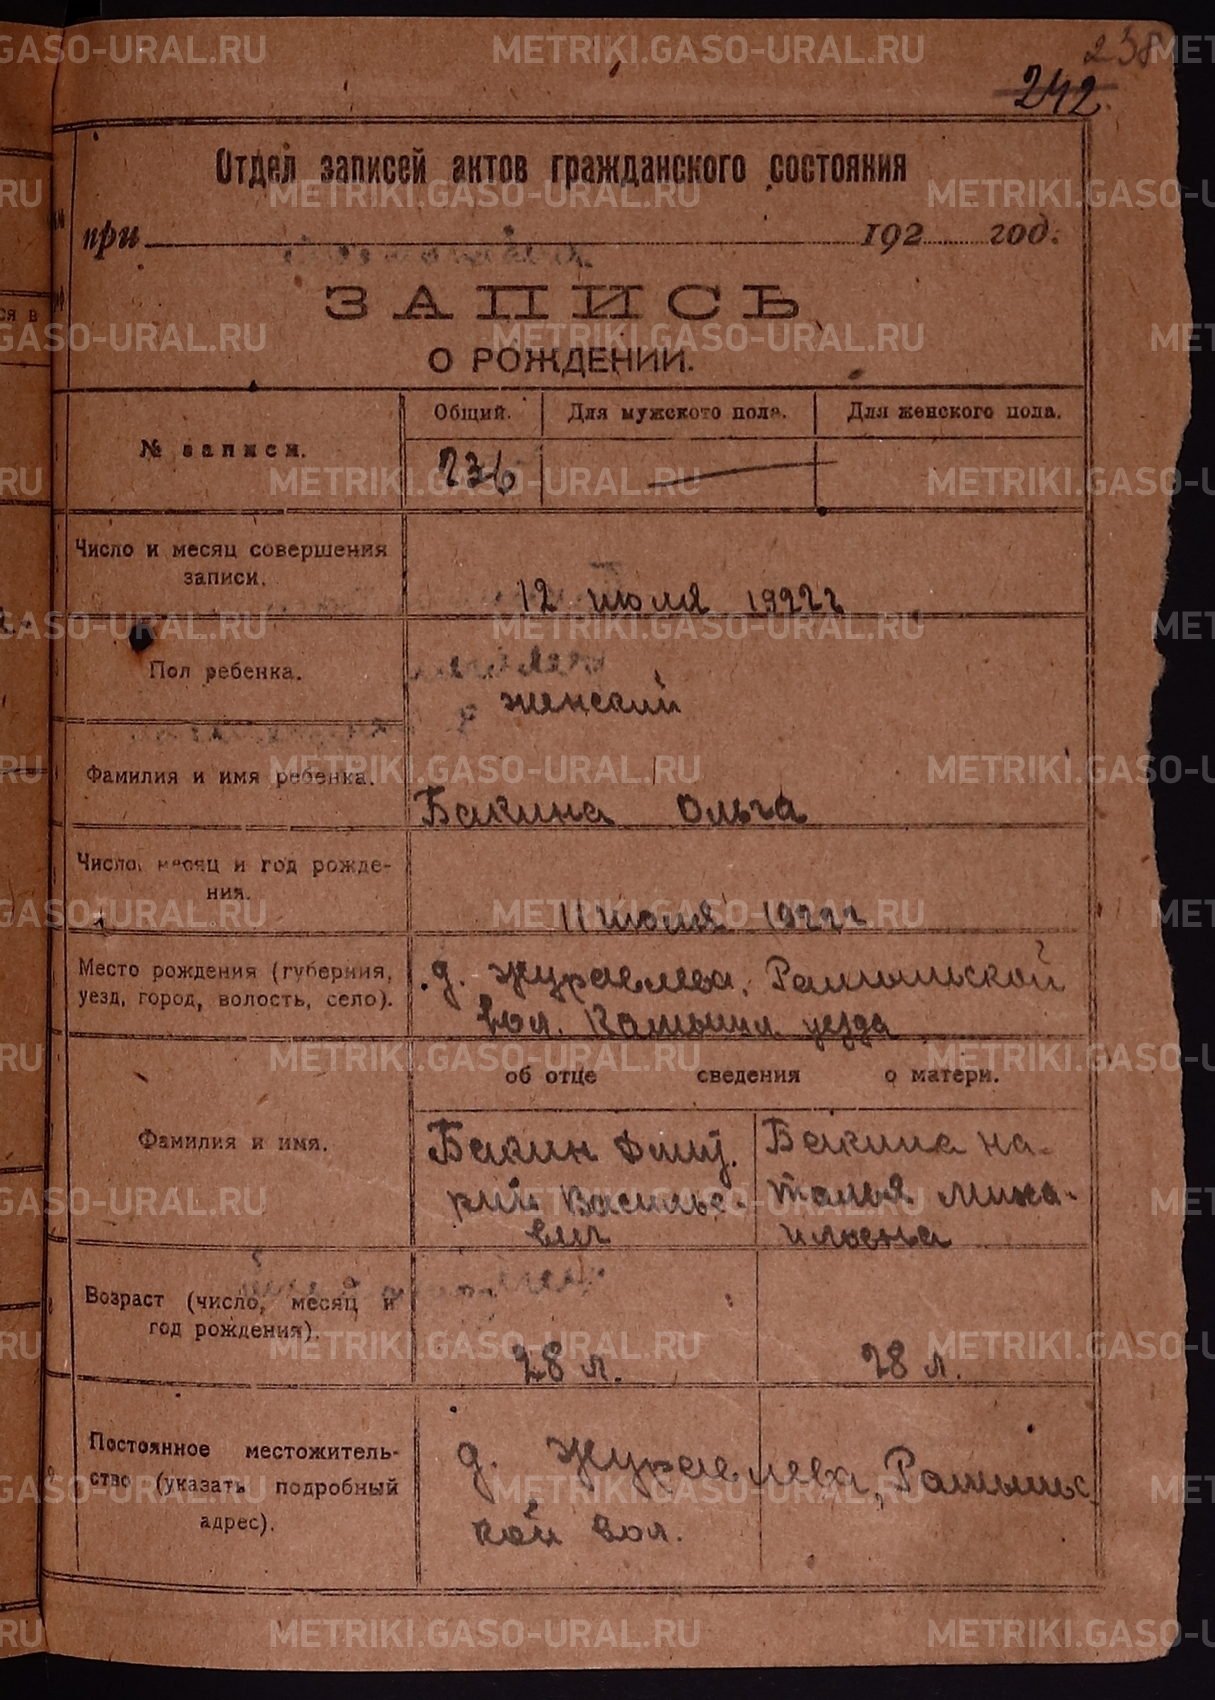 238
242.
Отдел записей актов гражданского состояния
при 192 год.
ЗАПИСЬ
О РОЖДЕНИИ.
№ записи.
Общий. Для мужского пола. Для женского пола.
236
Число и месяц совершения
записи.
12 июля 1922 г
Пол ребенка.
женский
Фамилия и имя ребенка.
Бакина Ольга
Число, месяц и год рожде-
ния.
11 июля 1922 г
Место рождения (губерния,
уезд, город, волость, село).
д. Журавлева,
вол. Камышл уезда
об отце сведения о матери.
Фамилия и имя.
Бакин Дми
рий Василье-
вич
Бакина На-
талья Миха-
иловна
Возраст (число, месяц и
год рождения).
28 л.
28 л.
Постоянное местожитель-
ство (указать подробный
адрес).
д. Журавлева,
кой вол.
METRIKI.GASO-URAL.RU